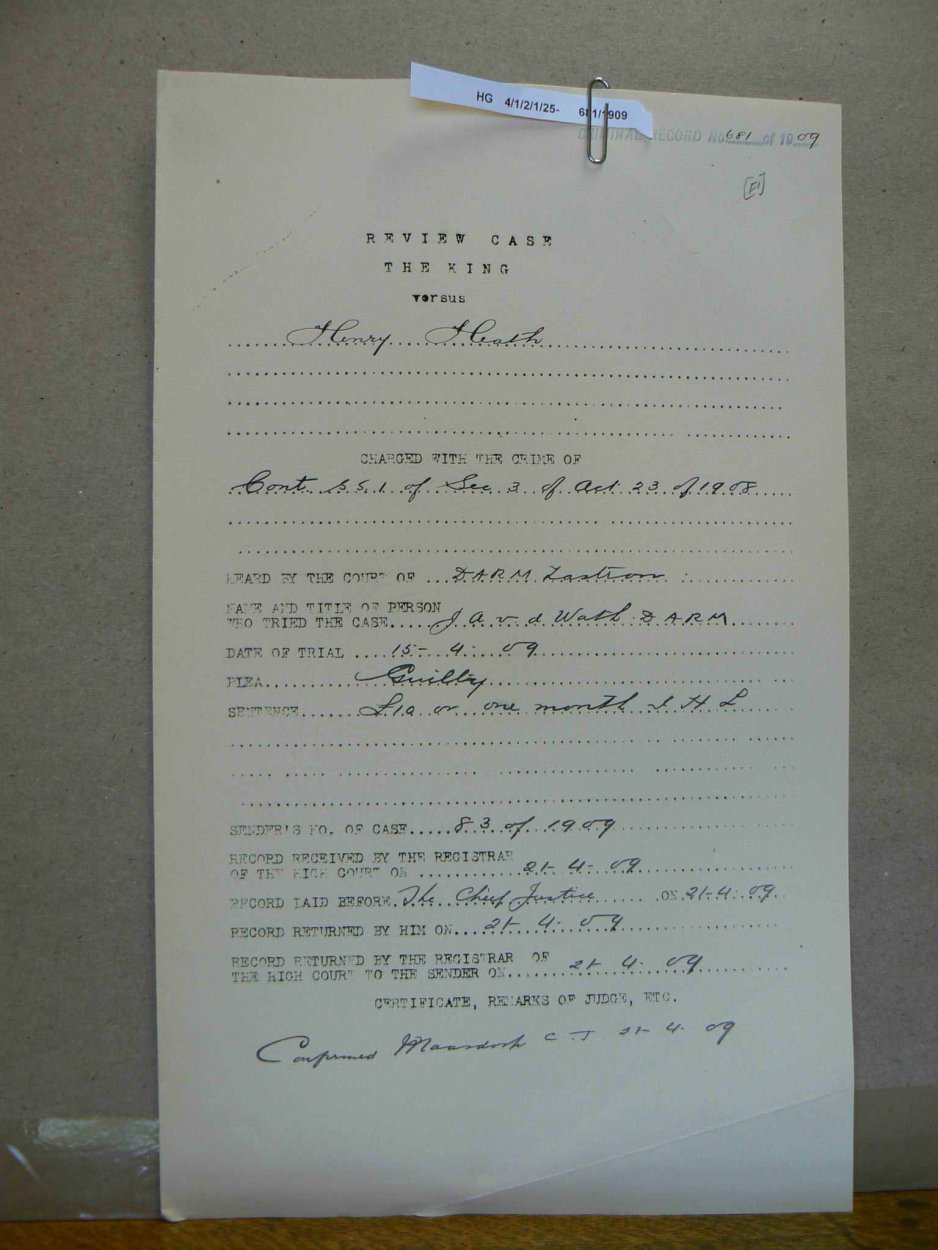 HG 4/1/2/1/25- 681/1909
CRIMINAL RECORD No. 681 of 1909
[E1]
REVIEW CASE
THE KING
versus
Henry Heath
CHARGED WITH THE CRIME OF
Cont. s.s.1. of Sec 3 of Act 23 of 1908
HEARD BY THE COURT OF ... D.A.R.M. Zastron
NAME AND TITLE OF PERSON
WHO TRIED THE CASE..... J. A. v. d. Wath D A R M
DATE OF TRIAL .... 15- 4. 09
PLEA........ Guilty
SENTENCE...... £10 or one month I H L
SENDER'S NO. OF CASE..... 83 of 1909
RECORD RECEIVED BY THE REGISTRAR
OF THE HIGH COURT ON ........... 21- 4- 09
RECORD LAID BEFORE. The Chief Justice ...... ON 21-4-09.
RECORD RETURNED BY HIM ON... 21- 4- 09
RECORD RETURNED BY THE REGISTRAR OF
THE HIGH COURT TO THE SENDER ON...... 21- 4- 09
CERTIFICATE, REMARKS OF JUDGE, ETC.
Confirmed Maasdorp C J 21- 4- 09